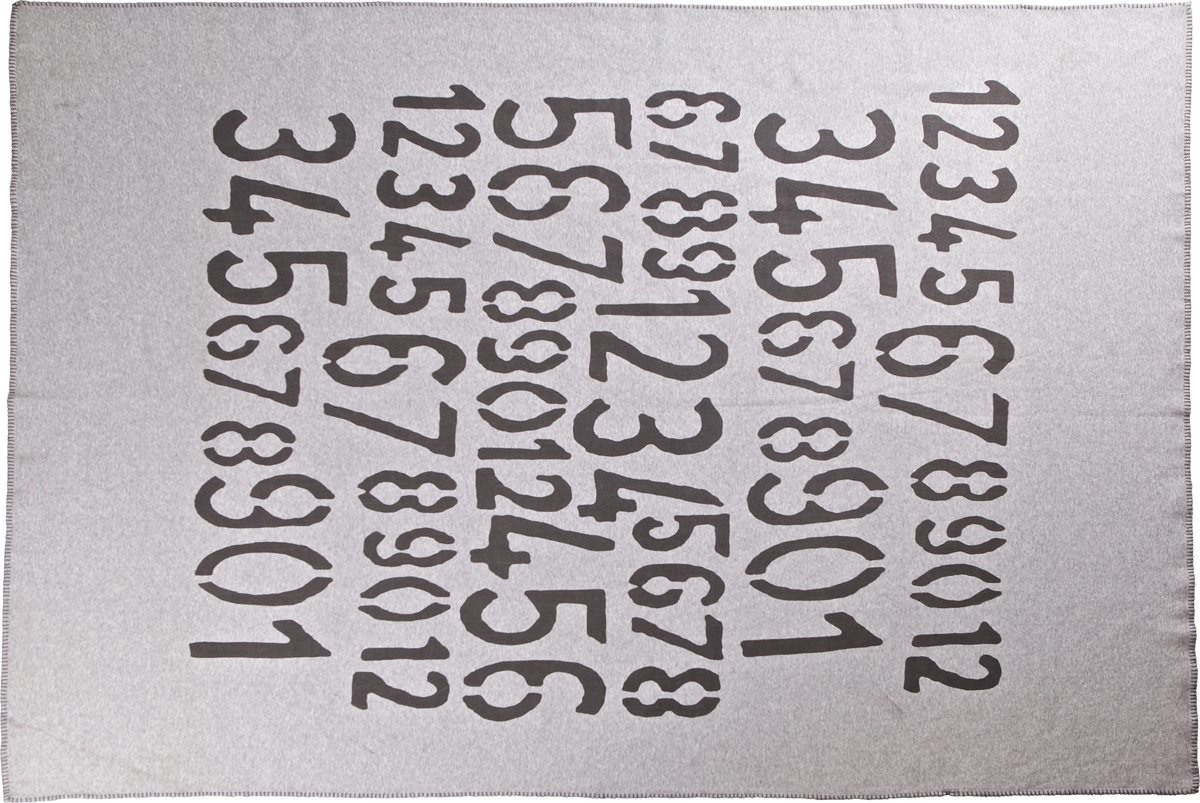 123456789012
345678901
678912345678
56789012456
123456789012
345678901